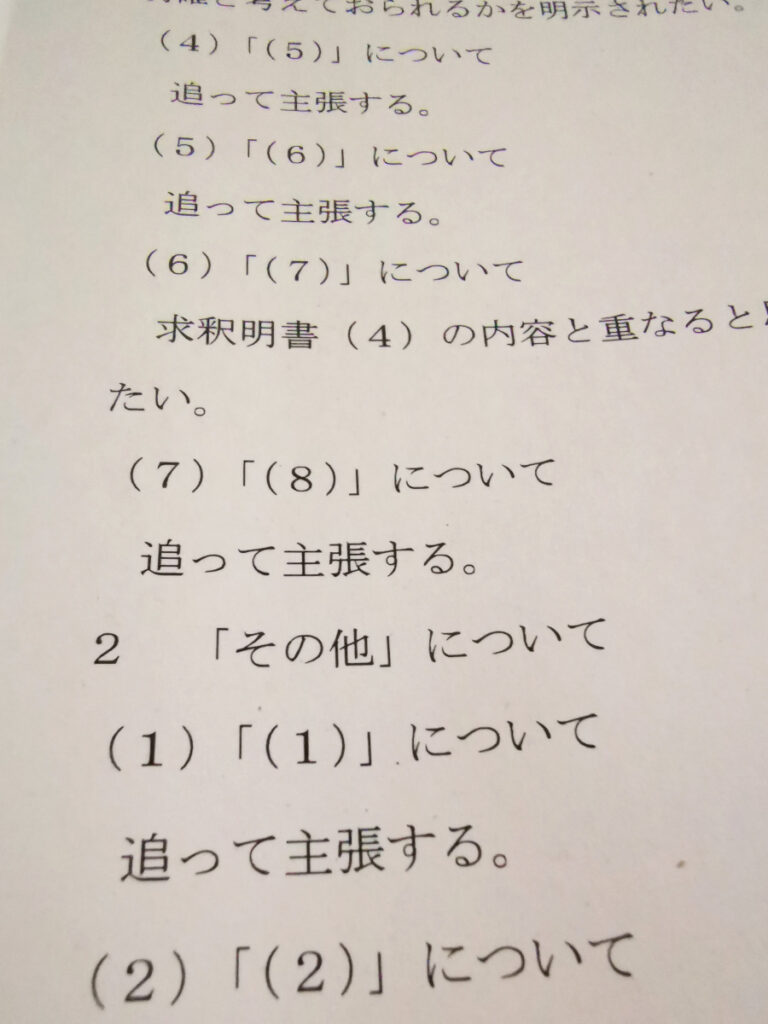 と考えておられるかを明示されたい。
(4)「(5)」について
追って主張する。
(5)「(6)」について
追って主張する。
(6)「(7)」について
求釈明書(4)の内容と重なると
たい。
(7)「(8)」について
追って主張する。
2 「その他」について
(1)「(1)」について
追って主張する。
(2)「(2)」について